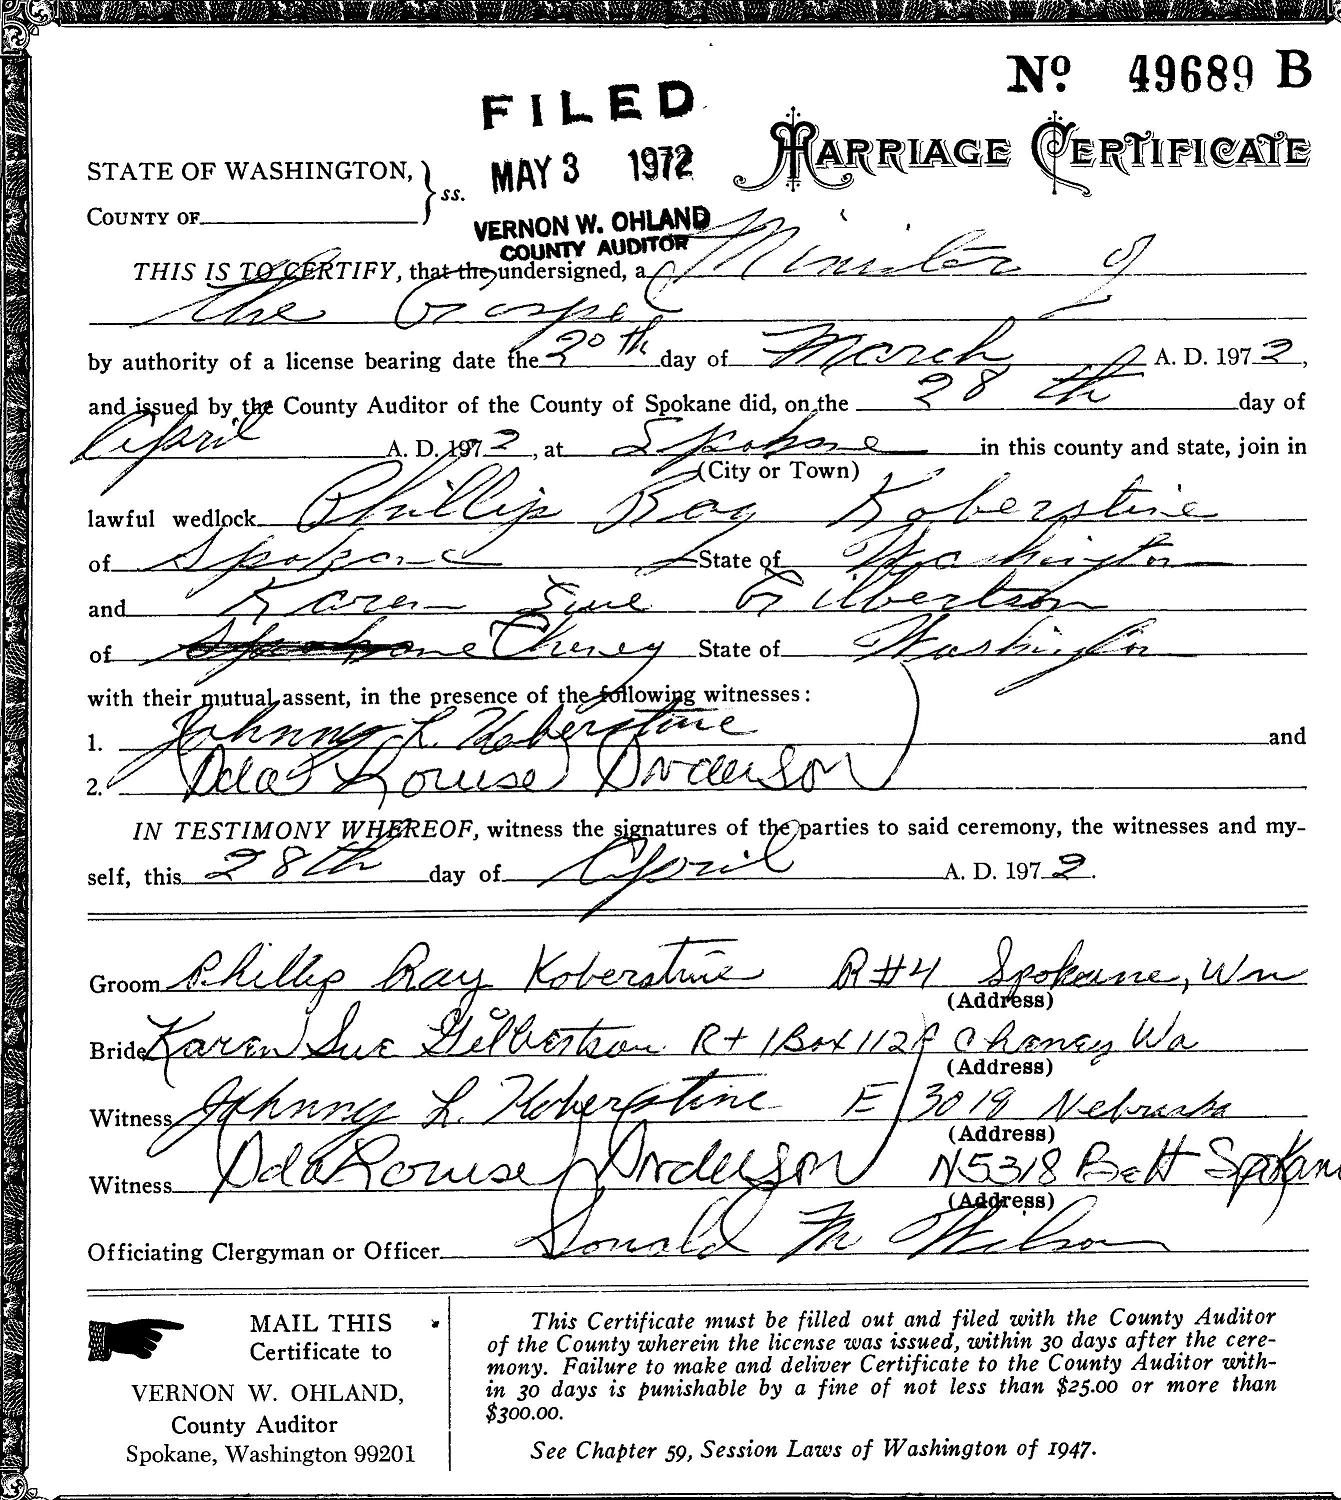 Nº 49689 B
FILED
MARRIAGE CERTIFICATE
STATE OF WASHINGTON, } ss.
MAY 3 1972
COUNTY OF
VERNON W. OHLAND
COUNTY AUDITOR
THIS IS TO CERTIFY, that the undersigned, a Minister of
the Gospel
by authority of a license bearing date the 20th day of March A. D. 1972,
and issued by the County Auditor of the County of Spokane did, on the 28th day of
April A. D. 1972, at Spokane in this county and state, join in
(City or Town)
lawful wedlock Phillip Ray Koberstine
of Spokane State of Washington
and Karen Sue Gilbertson
of Spokane Cheney State of Washington
with their mutual assent, in the presence of the following witnesses:
1. Johnny L. Koberstine and
2. Oda Louise Anderson
IN TESTIMONY WHEREOF, witness the signatures of the parties to said ceremony, the witnesses and my-
self, this 28th day of April A. D. 1972.
Groom Phillip Ray Koberstine R#4 Spokane, Wn
(Address)
Bride Karen Sue Gilbertson Rt 1 Box 112A Cheney Wa
(Address)
Witness Johnny L. Koberstine E 3019 Nebraska
(Address)
Witness Oda Louise Anderson N5318 Belt Spokane
(Address)
Officiating Clergyman or Officer Donald M Wilson
MAIL THIS
Certificate to
VERNON W. OHLAND,
County Auditor
Spokane, Washington 99201
This Certificate must be filled out and filed with the County Auditor
of the County wherein the license was issued, within 30 days after the cere-
mony. Failure to make and deliver Certificate to the County Auditor with-
in 30 days is punishable by a fine of not less than $25.00 or more than
$300.00.
See Chapter 59, Session Laws of Washington of 1947.